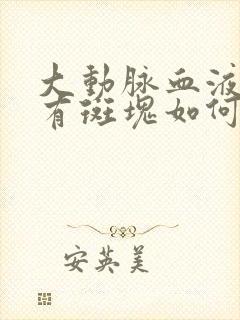 大動脉血液
有斑塊如何
安英美